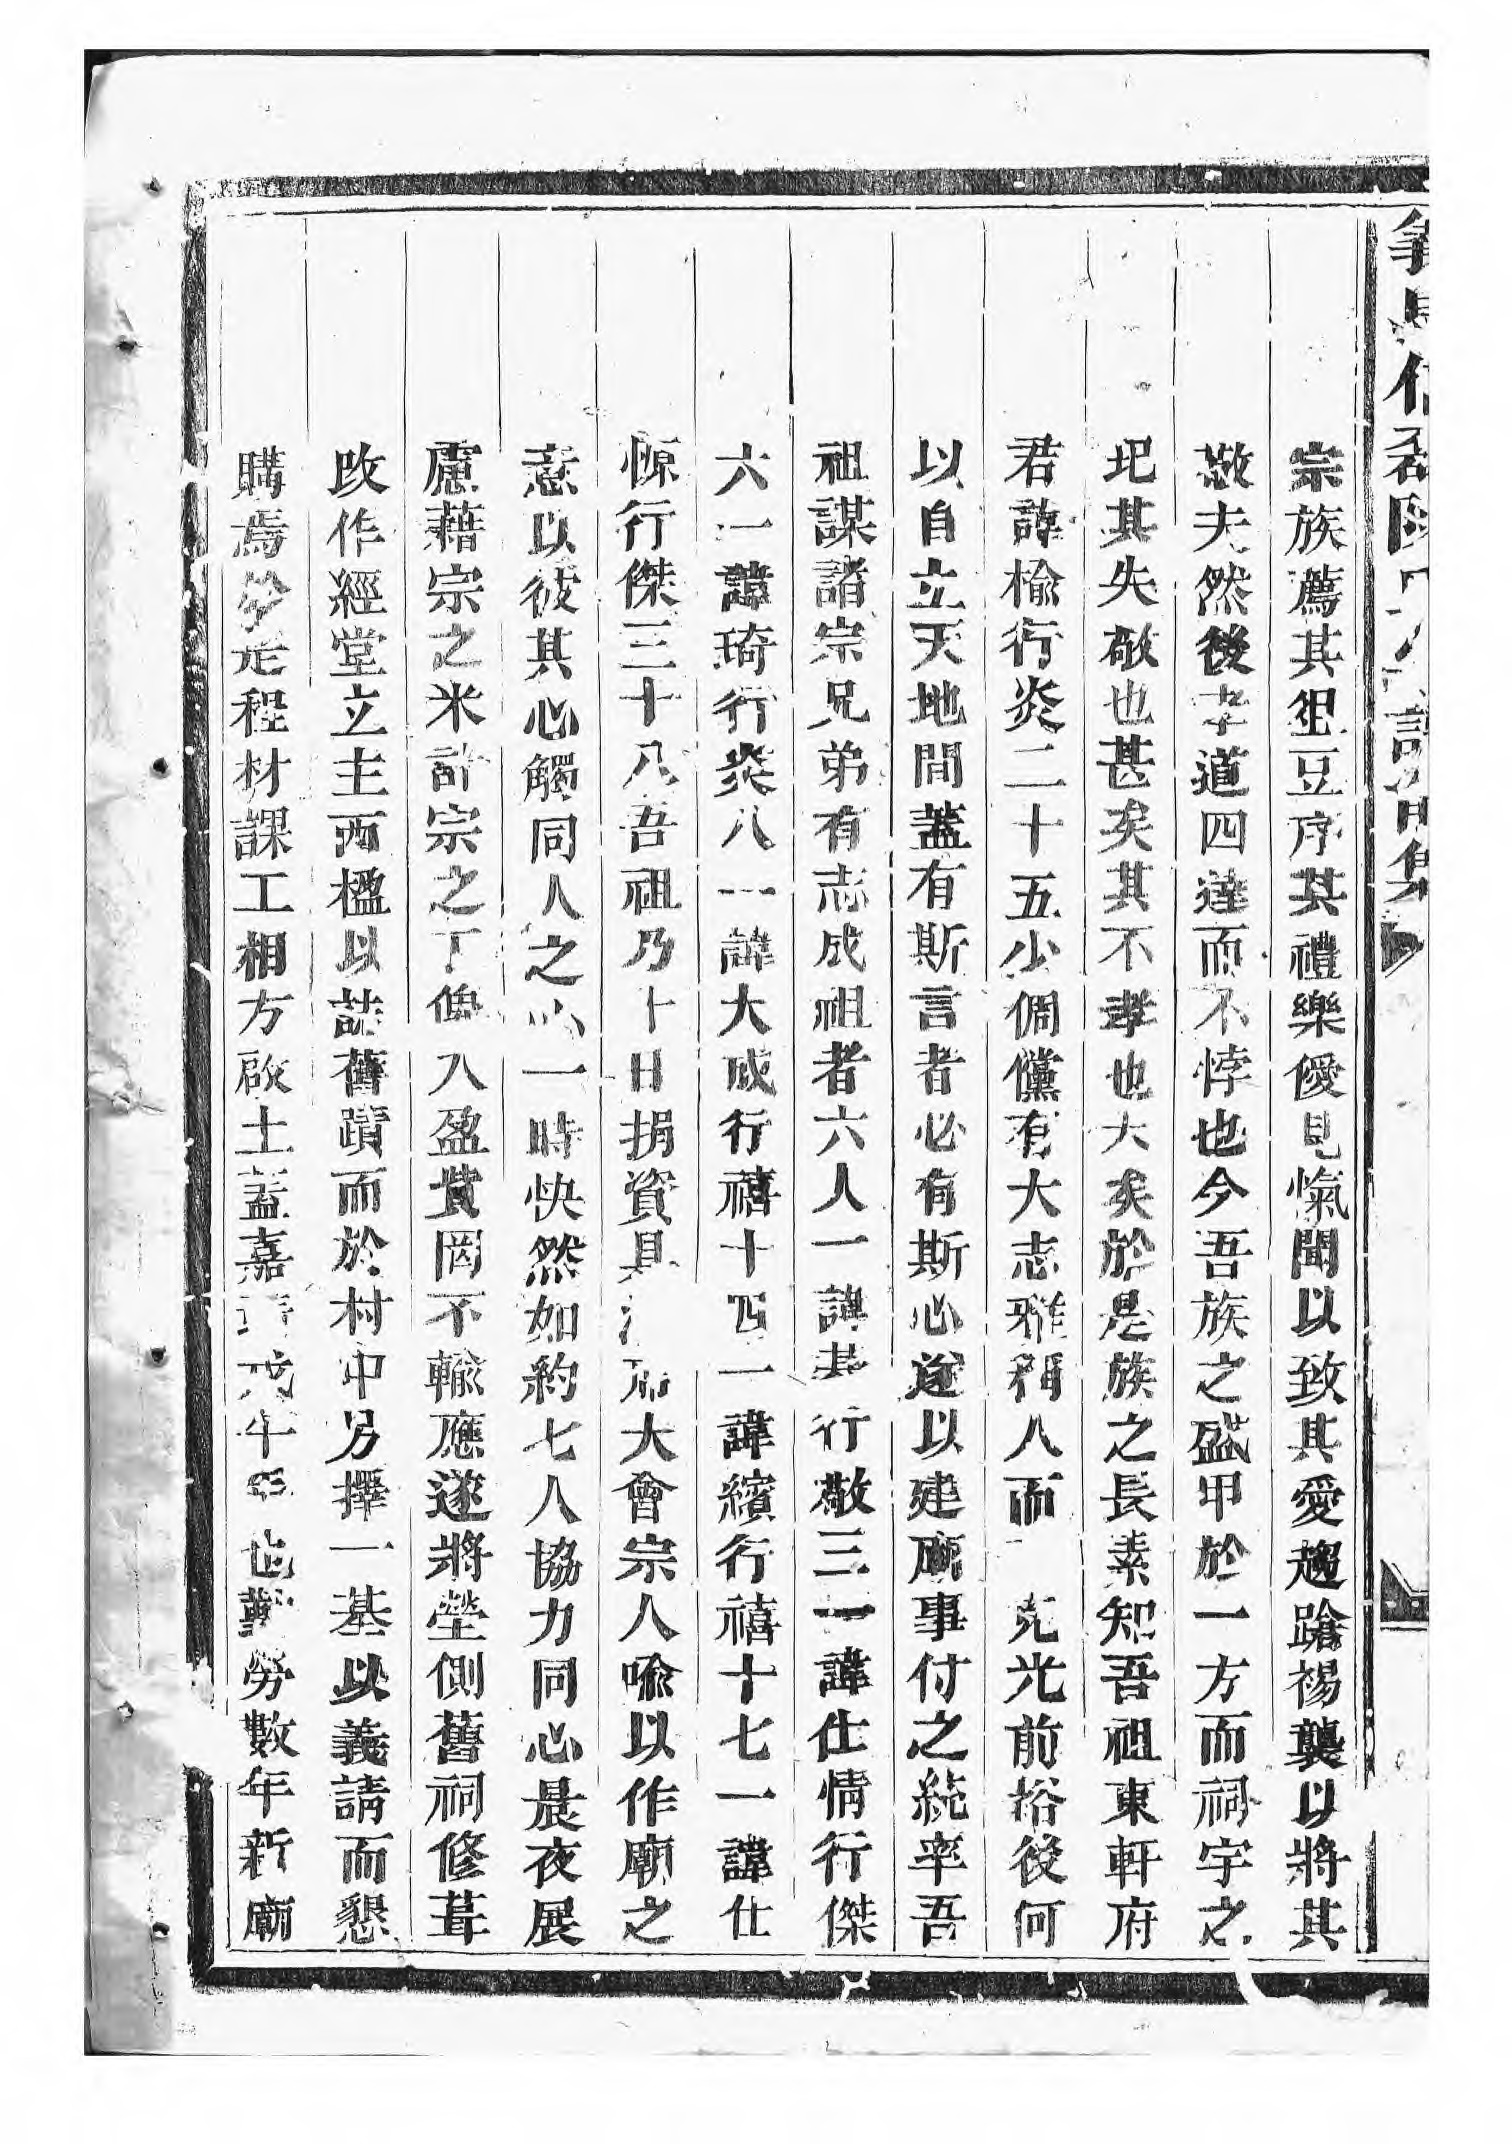 宗族薦其俎豆序其禮樂僾見愾聞以致其愛趨蹌裼襲以將其
敬夫然後孝道四達而不悖也今吾族之盛甲於一方而祠宇之
圯其失敬也甚矣其不孝也大矣於是族之長素知吾祖東軒府
君諱榆行炎二十五少倜儻有大志雅稱人而 克光前裕後何
以自立天地間蓋有斯言者必有斯心遂以建廟事付之統率吾
祖謀諸宗兄弟有志成祖者六人一諱 行敬三一諱仕情行傑
六一諱琦行炎八一諱大成行禧十四一諱繽行禧十七一諱仕
惊行傑三十八吾祖乃 日捐資具 大會宗人喻以作廟之
意以彼其心觸同人之心一時快然如約七人協力同心晨夜展
慮藉宗之米計宗之丁 入盈貲罔不輸應遂將塋側舊祠修葺
改作經堂立主西楹以誌舊蹟而於村中另擇一基以義請而懇
購焉 程材課工相方啟土蓋嘉靖戊午 也勤勞數年新廟